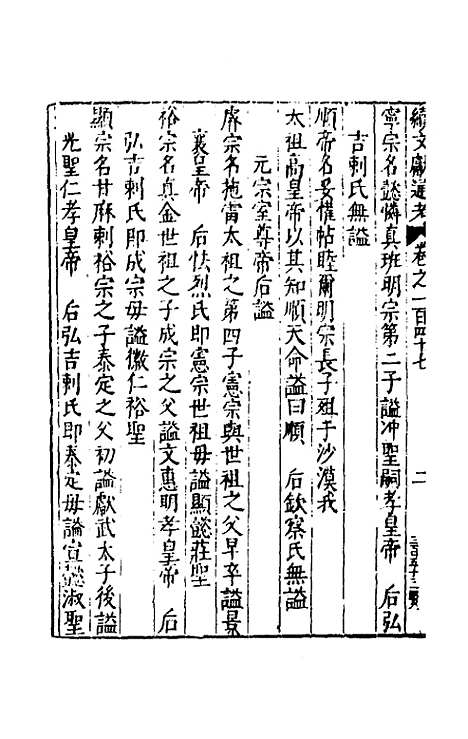 續文獻通考 卷之一百四十七 二
寧宗名懿憐真班明宗第二子謚冲聖嗣孝皇帝 后弘
吉剌氏無謚
順帝名妥懽帖睦爾明宗長子殂于沙漠我
太祖高皇帝以其知順天命謚曰順 后欽察氏無謚
元宗室尊帝后謚
睿宗名拖雷太祖之第四子憲宗與世祖之父早卒謚景
襄皇帝 后怯烈氏即憲宗世祖母謚顯懿莊聖
裕宗名真金世祖之子成宗之父謚文惠明孝皇帝 后
弘吉剌氏即成宗母謚徽仁裕聖
顯宗名甘麻剌裕宗之子泰定之父初謚獻武太子後謚
光聖仁孝皇帝 后弘吉剌氏即泰定母謚宣懿淑聖